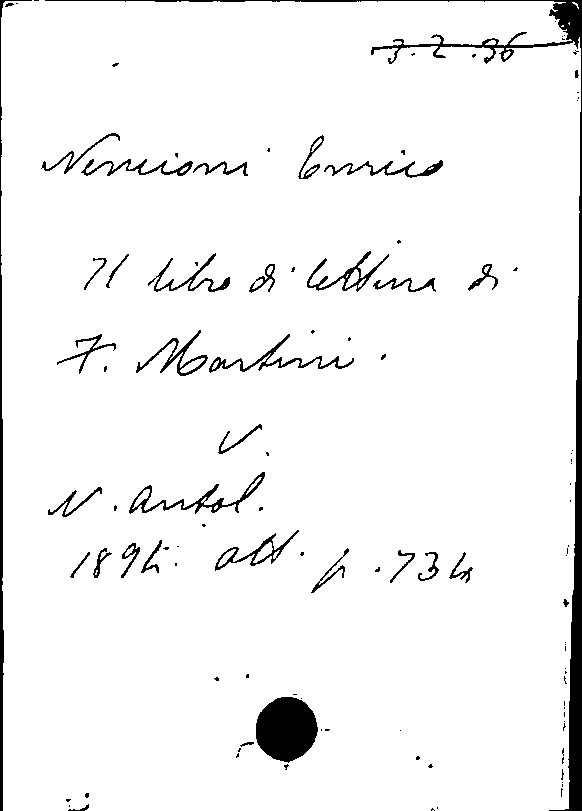 3.2.36
Nencioni Enrico
Il libro di lettura di
F. Martini.
V.
N. Antol.
1894. ott. p. 734